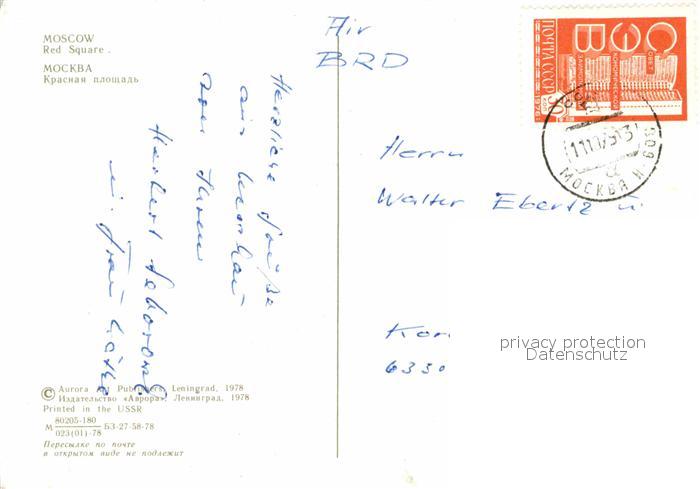 MOSCOW
Red Square.
МОСКВА
Красная площадь
Air
BRD
Herzliche Grüße
aus Moskau
Ihnen
Herbert
u. Frau Käthe
Herrn
Walter Ebertz u.
Kon
6330
privacy protection
Datenschutz
СЭВ
СОВЕТ
ЭКОНОМИЧЕСКОЙ
ВЗАИМОПОМОЩИ
ПОЧТА СССР
1974
МОСКВА
© Aurora Art Publishers, Leningrad, 1978
Издательство «Аврора». Ленинград, 1978
Printed in the USSR
М 80205-180 БЗ-27-58-78
023(01)-78
Пересылке по почте
в открытом виде не подлежит